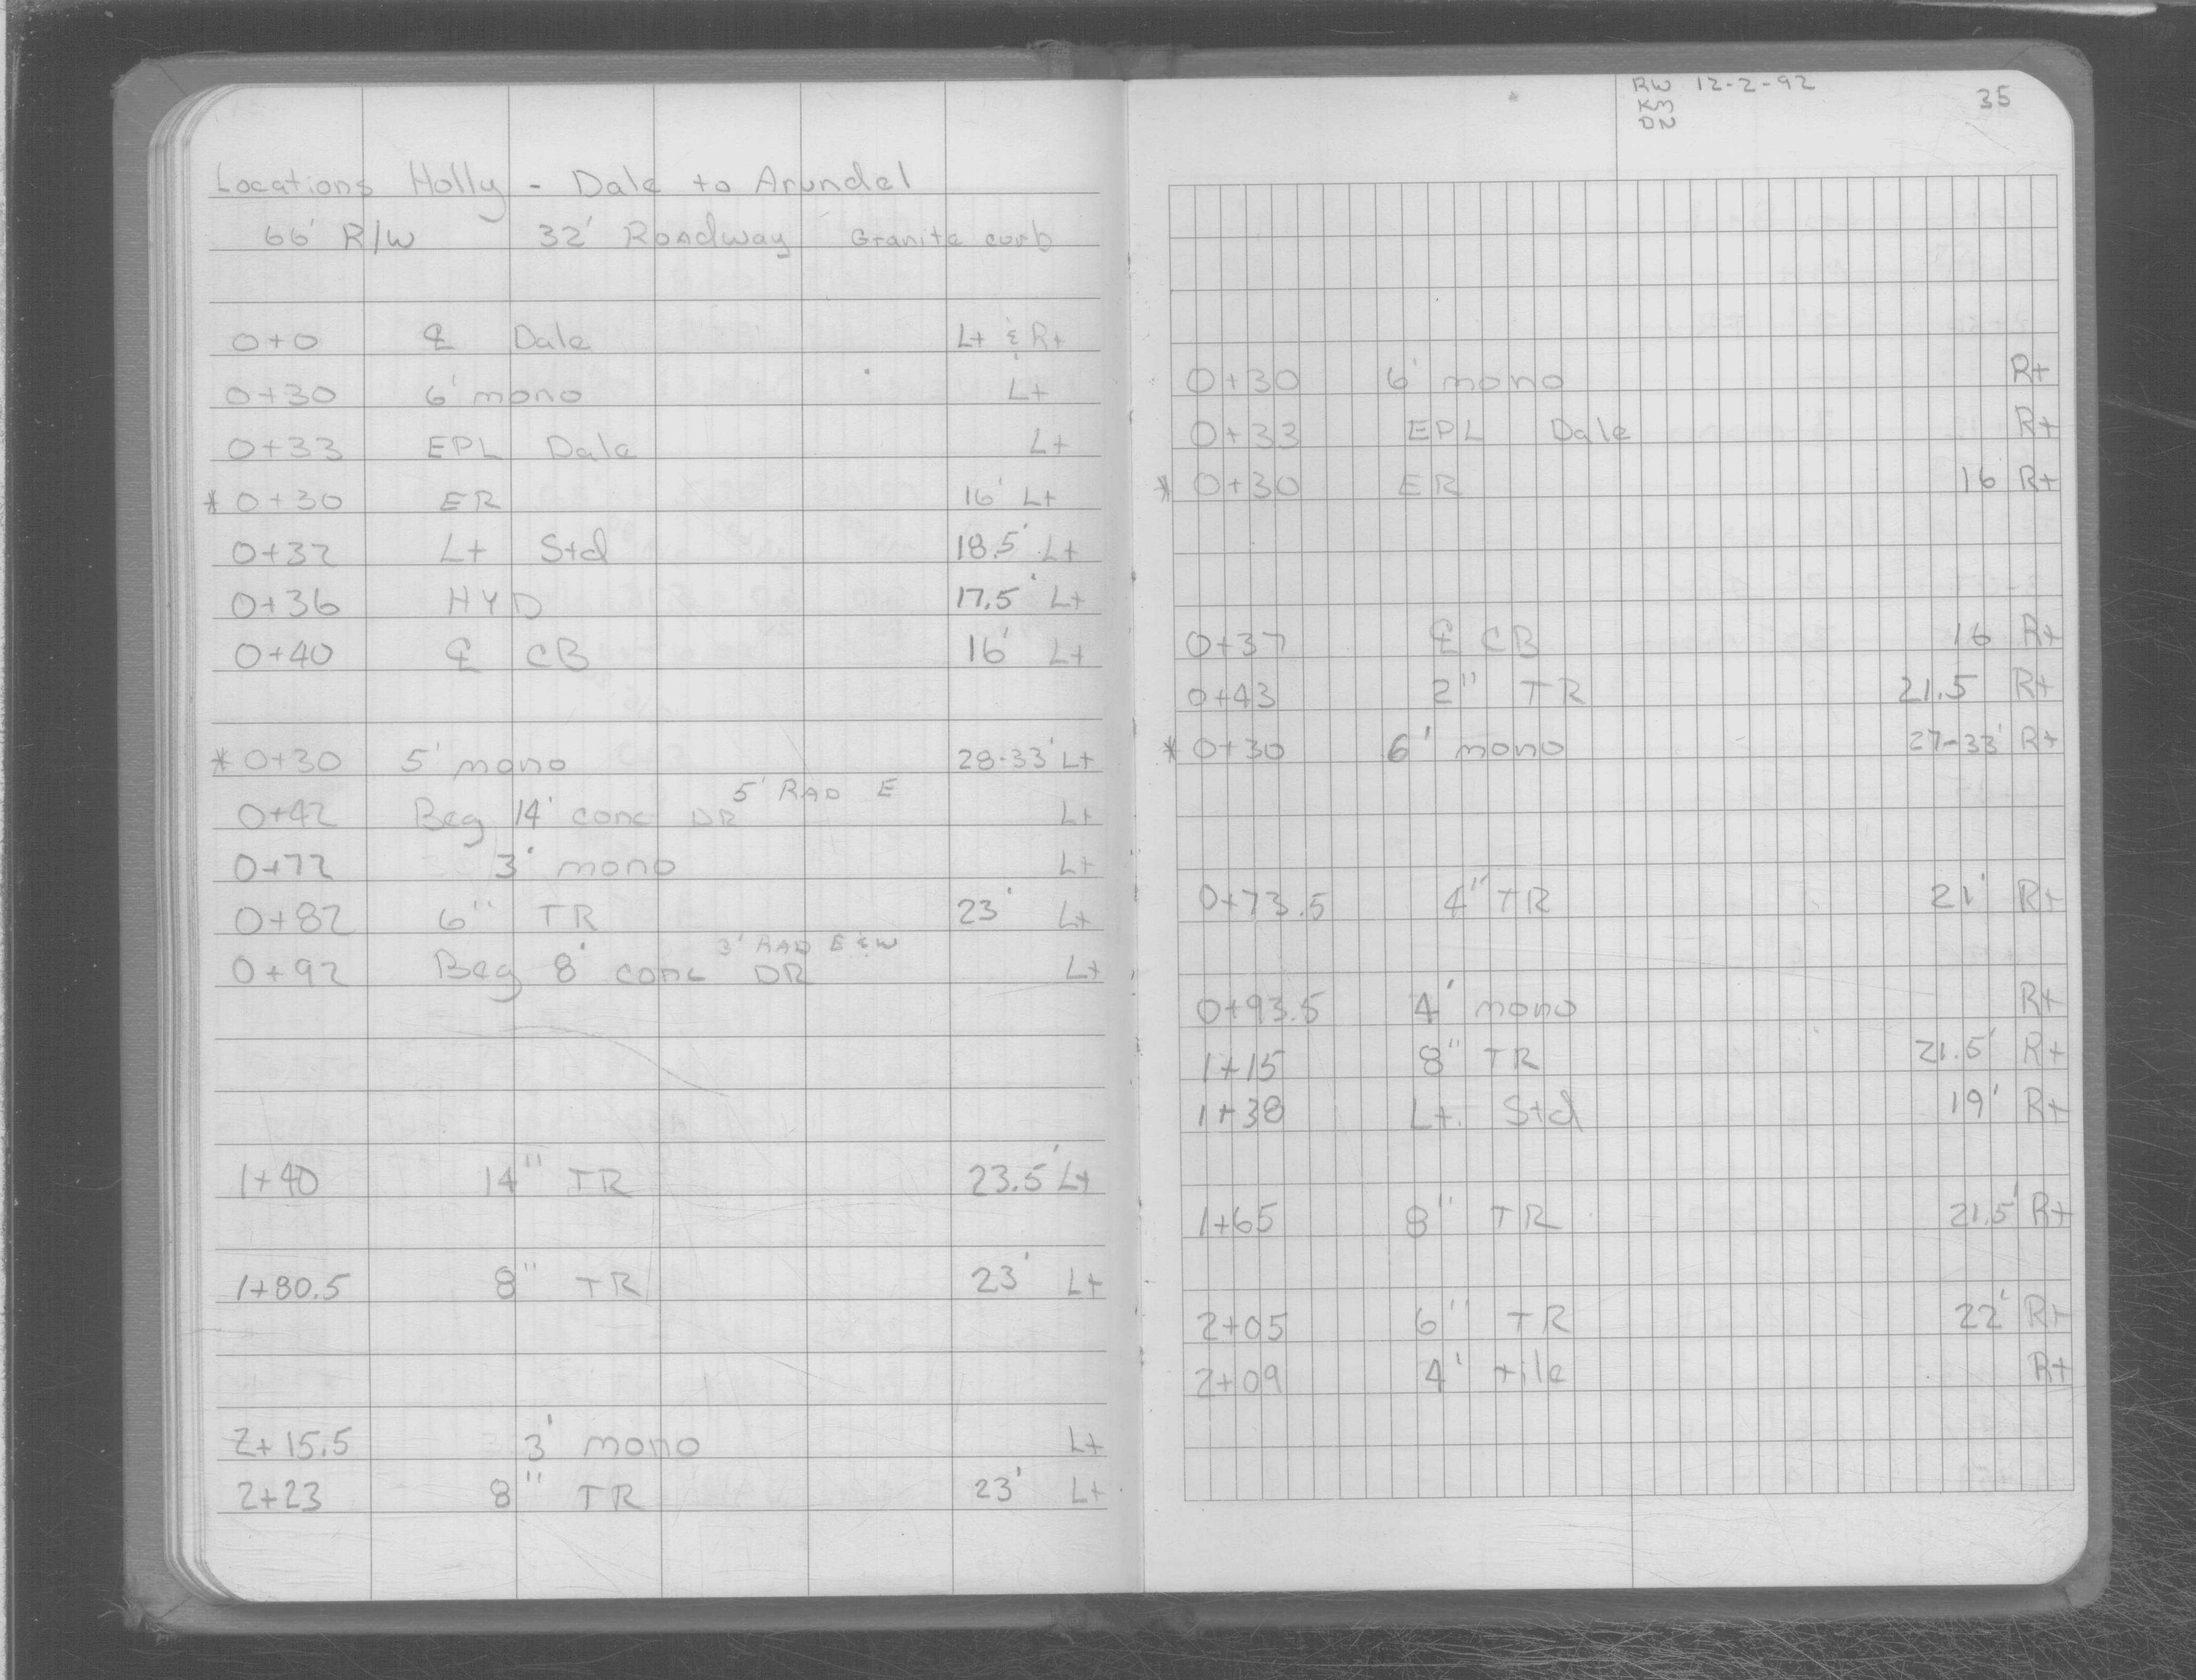 Locations Holly - Dale to Arundel
66' R/W 32' Roadway Granite curb
0+0 ℄ Dale Lt & Rt
0+30 6' mono Lt
0+33 EPL Dale Lt
* 0+30 ER 16' Lt
0+32 Lt Std 18.5' Lt
0+36 HYD 17.5' Lt
0+40 ℄ CB 16' Lt
* 0+30 5' mono 28-33' Lt
5' RAD E
0+42 Beg 14' conc DR Lt
0+72 3' mono Lt
0+82 6" TR 23' Lt
3' RAD E & W
0+92 Beg 8' conc DR Lt
1+40 14" TR 23.5' Lt
1+80.5 8" TR 23' Lt
2+15.5 3' mono Lt
2+23 8" TR 23' Lt
RW 12-2-92 35
KM
DN
0+30 6' mono Rt
0+33 EPL Dale Rt
* 0+30 ER 16 Rt
0+37 ℄ CB 16 Rt
0+43 2" TR 21.5 Rt
* 0+30 6' mono 27-33' Rt
0+73.5 4" TR 21' Rt
0+93.5 4' mono Rt
1+15 8" TR 21.5' Rt
1+38 Lt. Std 19' Rt
1+65 8" TR 21.5' Rt
2+05 6" TR 22' Rt
2+09 4' tile Rt